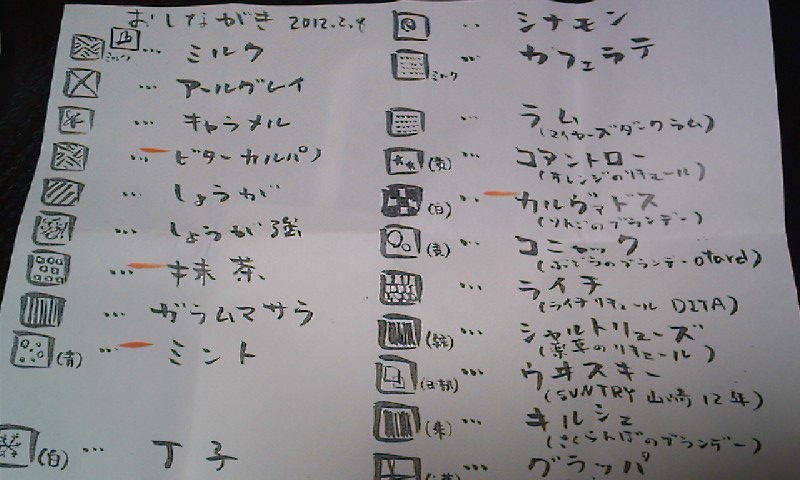 おしながき 2012.2.8
ミルク … ミルク
… アールグレイ
… キャラメル
… ビターカルパノ
… しょうが
… しょうが強
… 抹茶
… ガラムマサラ
(青) … ミント
(白) … 丁子
… シナモン
ミルク … カフェラテ
… ラム
(マイヤーズダークラム)
… コアントロー
(オレンジのリキュール)
(白) … カルヴァドス
(りんごのブランデー)
… コニャック
(ぶどうのブランデーOtard)
… ライチ
(ライチリキュール DITA)
(緑) … シャルトリューズ
(薬草のリキュール)
… ウヰスキー
(SUNTRY 山崎 12年)
(朱) … キルシェ
(さくらんぼのブランデー)
… グラッパ